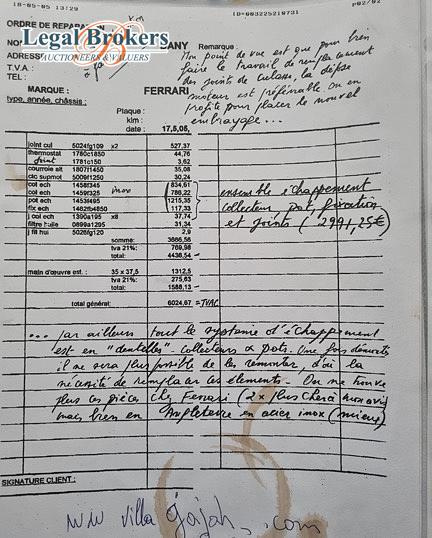 18-05-05 13:29
ID=003225210731
P02/02
ORDRE DE REPARATION
Legal Brokers
AUCTIONEERS & VALUERS
NO
DANY
Remarque :
ADRESS
T.V.A :
TEL :
MARQUE :
FERRARI
type, année, châssis :
Mon point de vue est que pour bien
faire le travail de remplacement
des joints de culasse, la dépose
moteur est préférable. on en
profite pour placer le nouvel
embrayage...
Plaque :
km :
date : 17,5,05,
joint cul 5024fg109 x2 527,37
thermostat 1780c1850 44,76
joint 1781c150 3,62
courroie alt 1807f1450 35,08
clic supmot 2009f1250 30,24
col ech 1458f345 inox 834,61
col ech 1459f325 786,22
pot ech 1453f495 1215,35
fix ech 1482fb4850 117,33
j col ech 1390a195 x8 37,74
filtre huile 0899a1295 31,34
j filt hui 5026fg120 2,9
ensemble échappement
collecteur pot, fixation
et joints (2991,25€)
somme: 3666,56
tva 21%: 769,98
total: 4436,54
main d'œuvre est. : 35 x 37,5 1312,5
tva 21%: 275,63
total: 1588,13
total général: 6024,67 = TVAC
... par ailleurs tout le systeme d'échappement
est en "dentelles" - collecteurs & pots. Une fois démonté
il ne sera plus possible de les remonter, d'où la
nécessité de remplacer ces éléments - On ne trouve
plus ces pièces chez Ferrari (2 x plus cher à mon avis)
mais bien en Angleterre en acier inox (mieux)
SIGNATURE CLIENT :
www villa gajah. com